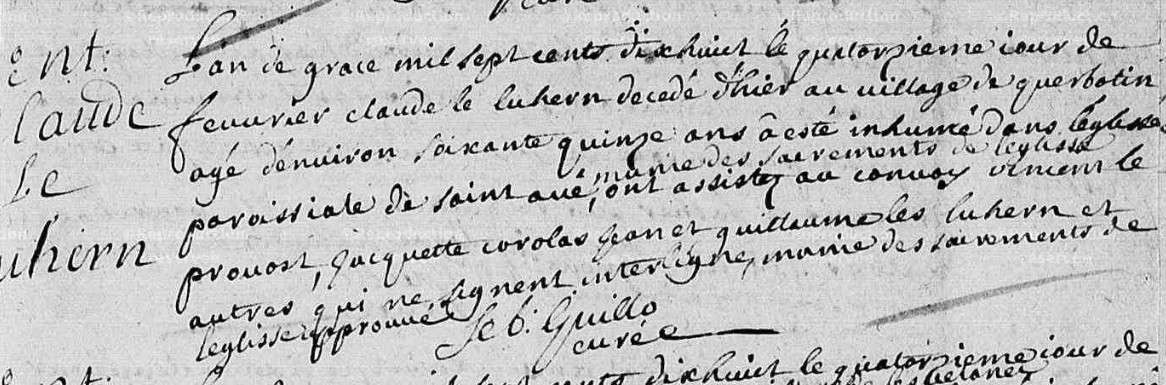 ent:
laude
Le
uhern
Lan de grace mil sept cents dixhuict le quatorzieme iour de
feuvrier claude le luhern decedé dhier au village de querbotin
agé denuiron soixante quinze ans a esté inhumé dans leglisse
munie des sacrements de leglisse
paroissiale de saint aué, ont assisté au convoy vincent le
prouost, jacquette corolas jean et guillaume les luhern et
autres qui ne signent interligne, munie des sacrements de
leglisse approuvé Seb: Guillo
curée
ent:
sept cents dixhuict le quatorzieme iour de